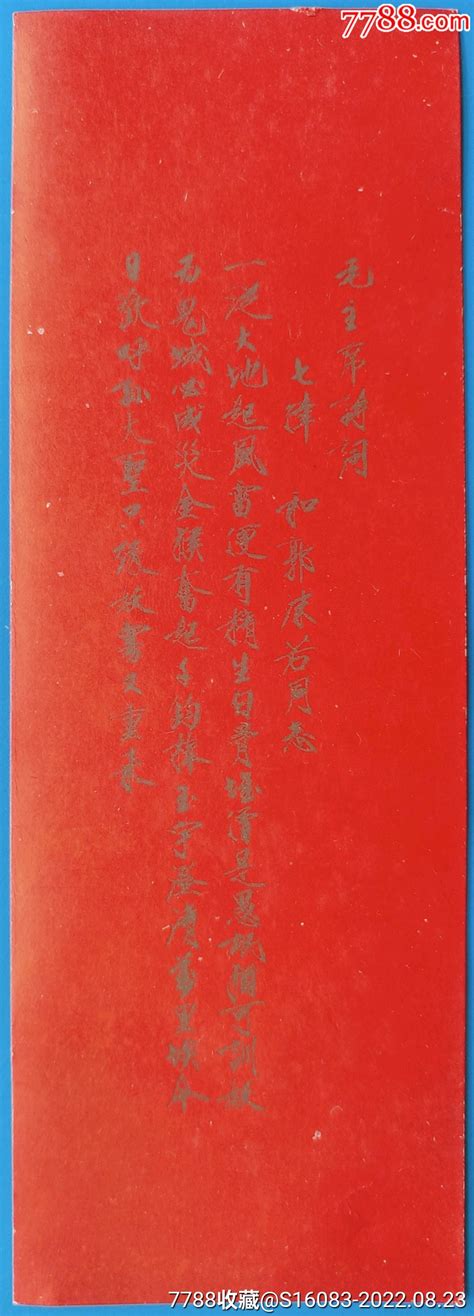 7788.com
毛主席诗词
七律　和郭沫若同志
一从大地起风雷便有精生白骨堆僧是愚氓犹可训妖
为鬼蜮必成災金猴奮起千钧棒玉宇澄清萬里埃今
日歡呼孙大聖只缘妖雾又重来
7788收藏@S16083-2022.08.23